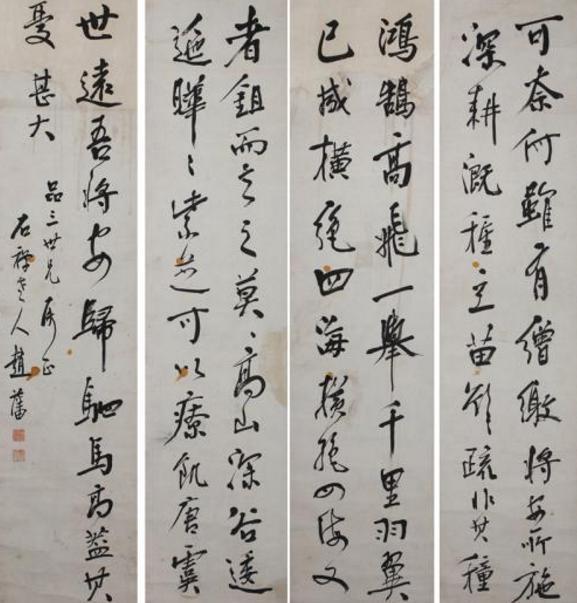 可奈何雖有繒繳將安所施
深耕溉種立苗欲疏非其種
鴻鵠高飛一舉千里羽翼
已成橫絕四海橫絕四海又
者鉏而去之莫々高山深谷逶
迤曄々紫芝可以療飢唐虞
世遠吾將安歸駟馬高蓋其
憂甚大
品三世兄屬正
石禪老人趙藩